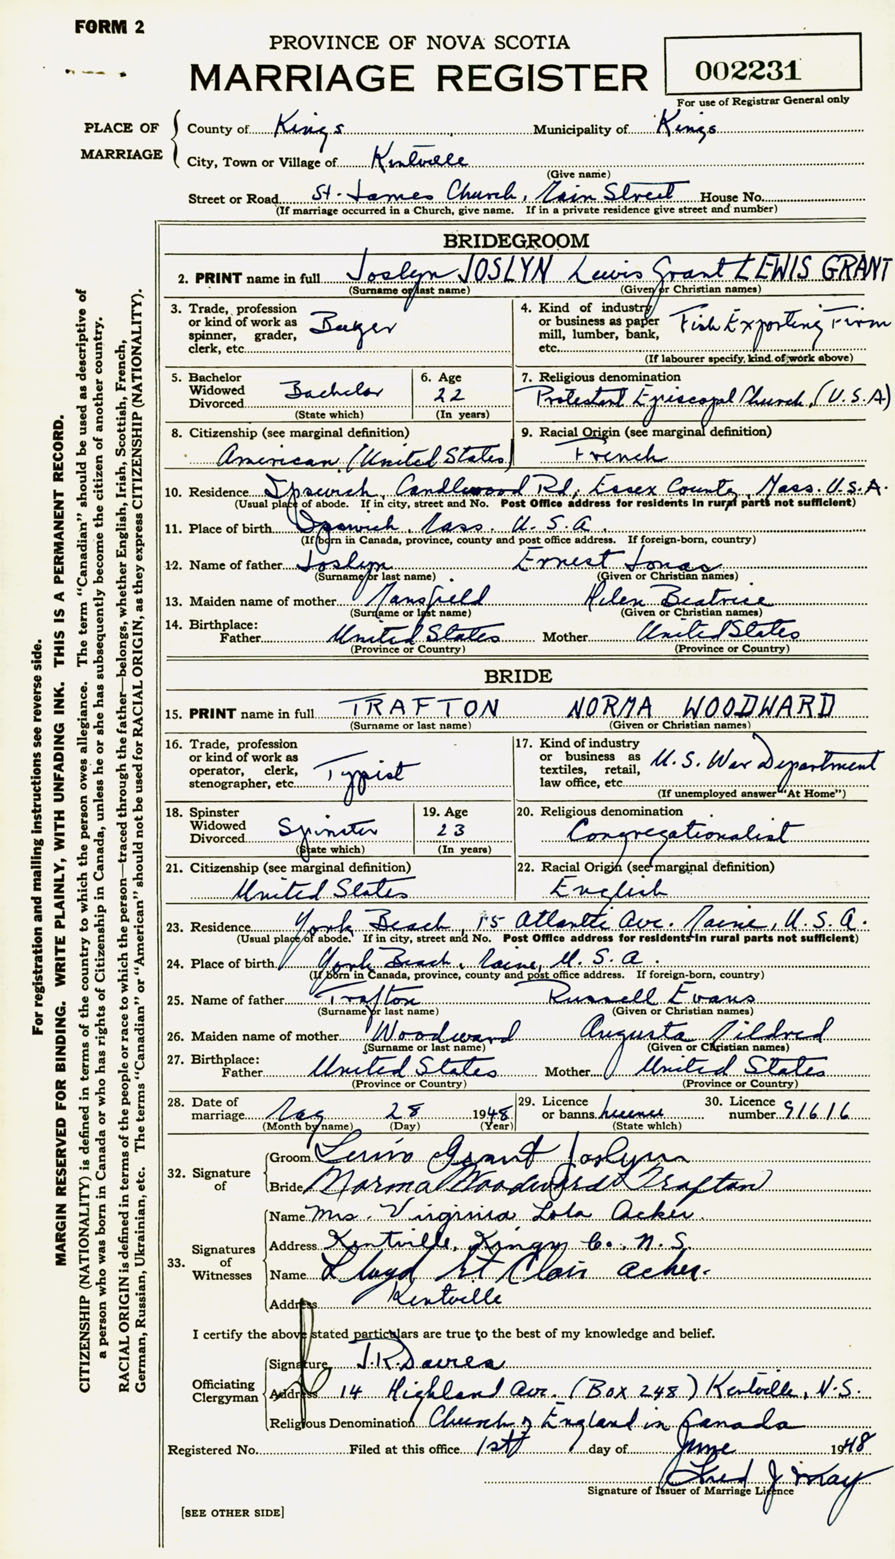 FORM 2
PROVINCE OF NOVA SCOTIA
MARRIAGE REGISTER
002231
For use of Registrar General only
PLACE OF MARRIAGE
County of Kings Municipality of Kings
City, Town or Village of Kentville
(Give name)
Street or Road St. James Church, Main Street House No.
(If marriage occurred in a Church, give name. If in a private residence give street and number)
BRIDEGROOM
2. PRINT name in full Joslyn JOSLYN Lewis Grant LEWIS GRANT
(Surname or last name) (Given or Christian names)
3. Trade, profession or kind of work as spinner, grader, clerk, etc. Buyer
4. Kind of industry or business as paper mill, lumber, bank, etc. Fish Exporting Firm
(If labourer specify, kind of work above)
5. Bachelor Widowed Divorced Bachelor
(State which)
6. Age 22
(In years)
7. Religious denomination
Protestant Episcopal Church, (U.S.A)
8. Citizenship (see marginal definition)
American (United States)
9. Racial Origin (see marginal definition)
French
10. Residence Ipswich, Candlewood Rd, Essex County, Mass. U.S.A.
(Usual place of abode. If in city, street and No. Post Office address for residents in rural parts not sufficient)
11. Place of birth Ipswich, Mass. U.S.A.
(If born in Canada, province, county and post office address. If foreign-born, country)
12. Name of father Joslyn Ernest Jonas
(Surname or last name) (Given or Christian names)
13. Maiden name of mother Mansfield Helen Beatrice
(Surname or last name) (Given or Christian names)
14. Birthplace:
Father United States Mother United States
(Province or Country) (Province or Country)
BRIDE
15. PRINT name in full TRAFTON NORMA WOODWARD
(Surname or last name) (Given or Christian names)
16. Trade, profession or kind of work as operator, clerk, stenographer, etc. Typist
17. Kind of industry or business as textiles, retail, law office, etc. U.S. War Department
(If unemployed answer "At Home")
18. Spinster Widowed Divorced Spinster
(State which)
19. Age 23
(In years)
20. Religious denomination
Congregationalist
21. Citizenship (see marginal definition)
United States
22. Racial Origin (see marginal definition)
English
23. Residence York Beach, 15 Atlantic Ave. Maine, U.S.A.
(Usual place of abode. If in city, street and No. Post Office address for residents in rural parts not sufficient)
24. Place of birth York Beach, Maine, U.S.A.
(If born in Canada, province, county and post office address. If foreign-born, country)
25. Name of father Trafton Russell Evans
(Surname or last name) (Given or Christian names)
26. Maiden name of mother Woodward Augusta Mildred
(Surname or last name) (Given or Christian names)
27. Birthplace:
Father United States Mother United States
(Province or Country) (Province or Country)
28. Date of marriage May 28 1948
(Month by name) (Day) (Year)
29. Licence or banns licence
(State which)
30. Licence number 91616
32. Signature of
Groom Lewis Grant Joslyn
Bride Norma Woodward Trafton
33. Signatures of Witnesses
Name Mrs. Virginia Lola Acker
Address Kentville, Kings Co. N.S.
Name Lloyd St Clair Acker.
Address Kentville
I certify the above stated particulars are true to the best of my knowledge and belief.
Officiating Clergyman
Signature J.R. Davies
Address 14 Highland Ave. (Box 248) Kentville, N.S.
Religious Denomination Church of England in Canada
Registered No. Filed at this office 1st day of June 1948
Fred J.
Signature of Issuer of Marriage Licence
[SEE OTHER SIDE]
For registration and mailing instructions see reverse side.
MARGIN RESERVED FOR BINDING. WRITE PLAINLY, WITH UNFADING INK. THIS IS A PERMANENT RECORD.
CITIZENSHIP (NATIONALITY) is defined in terms of the country to which the person owes allegiance. The term "Canadian" should be used as descriptive of
a person who was born in Canada or who has rights of Citizenship in Canada, unless he or she has subsequently become the citizen of another country.
RACIAL ORIGIN is defined in terms of the people or race to which the person—traced through the father—belongs, whether English, Irish, Scottish, French,
German, Russian, Ukrainian, etc. The terms "Canadian" or "American" should not be used for RACIAL ORIGIN, as they express CITIZENSHIP (NATIONALITY).